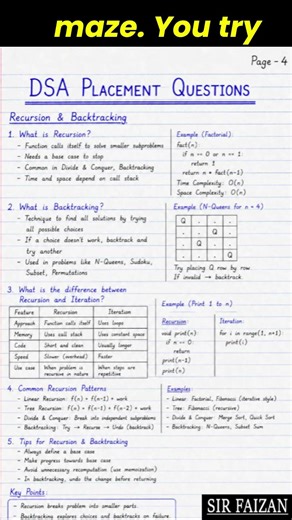 maze. You try
Page - 4
DSA PLACEMENT QUESTIONS
Recursion & Backtracking
1. What is Recursion?
- Function calls itself to solve smaller subproblems
- Needs a base case to stop
- Common in Divide & Conquer, Backtracking
- Time and space depend on call stack
Example (Factorial):
fact(n):
if n == 0 or n == 1:
return 1
return n * fact(n-1)
Time Complexity: O(n)
Space Complexity: O(n)
2. What is Backtracking?
- Technique to find all solutions by trying
all possible choices
- If a choice doesn't work, backtrack and
try another
- Used in problems like N-Queens, Sudoku,
Subset, Permutations
Example (N-Queens for n = 4)
Q . . .
. . Q .
. Q . .
. . . Q
Try placing Q row by row
If invalid → backtrack
3. What is the difference between
Recursion and Iteration?
Feature Recursion Iteration
Approach Function calls itself Uses loops
Memory Uses call stack Uses constant space
Code Short and clean Usually longer
Speed Slower (overhead) Faster
Use case When problem is recursive in nature When steps are repetitive
Example (Print 1 to n)
Recursion:
void print(n):
if n == 0:
return
print(n-1)
print(n)
Iteration:
for i in range(1, n+1):
print(i)
4. Common Recursion Patterns
- Linear Recursion: f(n) = f(n-1) + work
- Tree Recursion: f(n) = f(n-1) + f(n-2) + work
- Divide & Conquer: Break into independent subproblems
- Backtracking: Try → Recurse → Undo (backtrack)
Examples:
- Linear: Factorial, Fibonacci (iterative style)
- Tree: Fibonacci (recursive)
- Divide & Conquer: Merge Sort, Quick Sort
- Backtracking: N-Queens, Subset Sum
5. Tips for Recursion & Backtracking
- Always define a base case
- Make progress towards base case
- Avoid unnecessary recomputation (use memoization)
- In backtracking, undo the change before returning
Key Points:
- Recursion breaks problem into smaller parts
- Backtracking explores choices and backtracks on failure
SIR FAIZAN